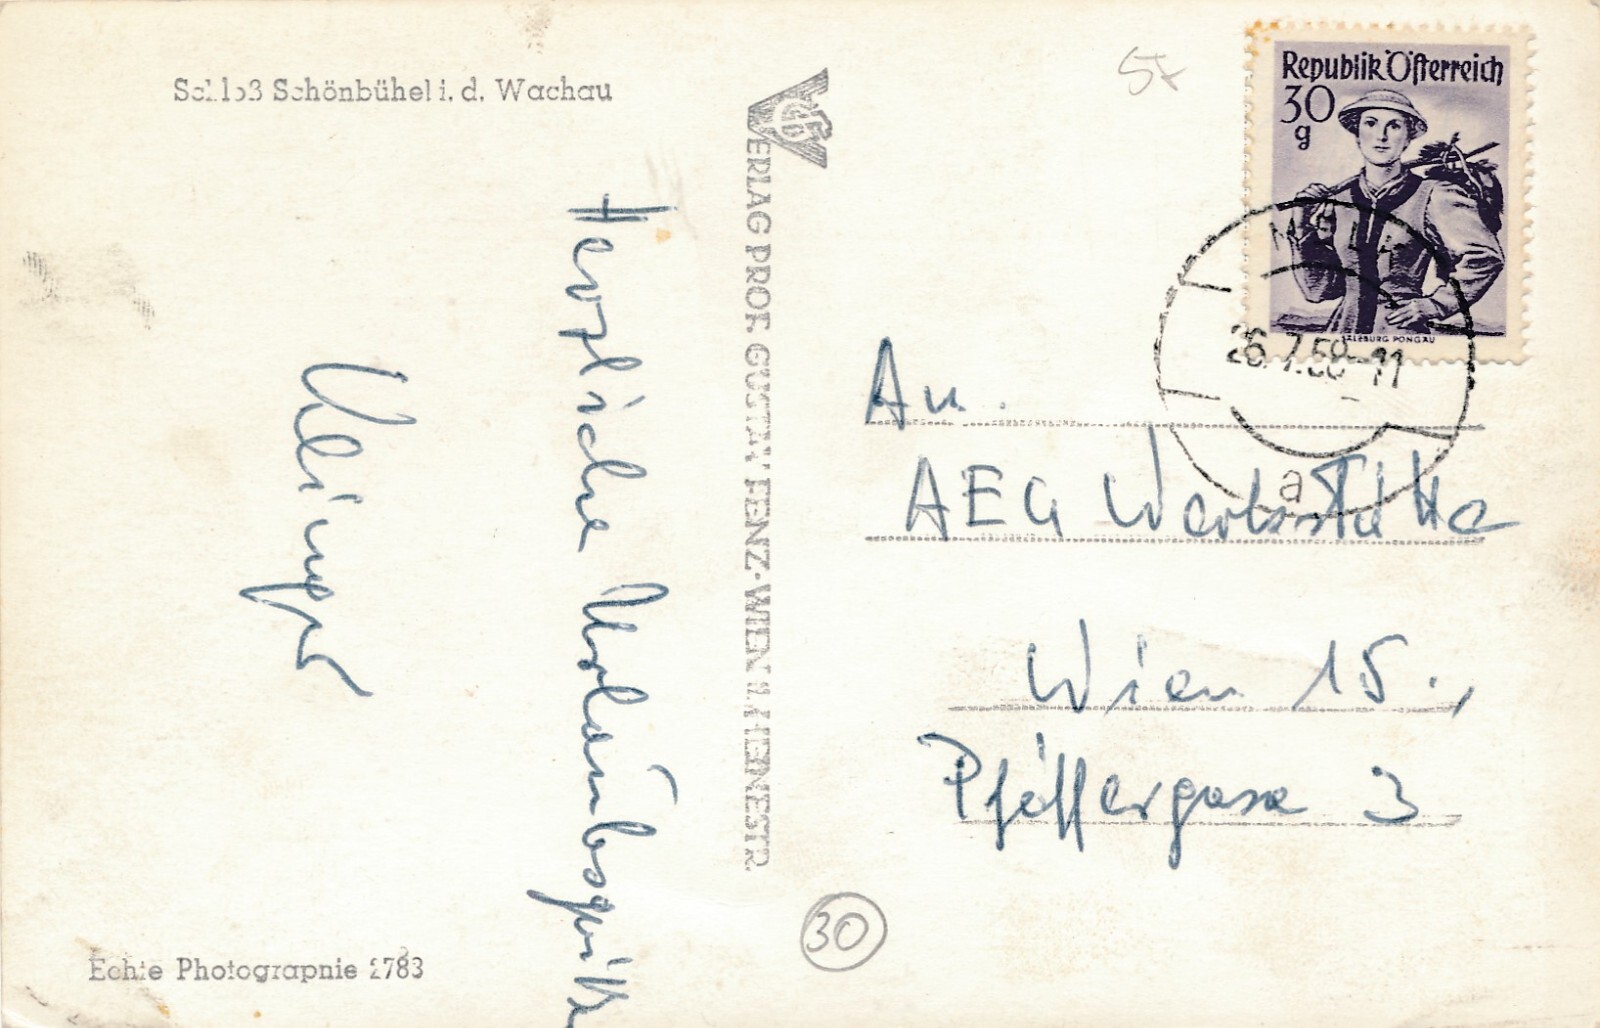 Schloß Schönbühel i. d. Wachau
Herzliche Urlaubsgrüße
Echte Photographie 2783
VERLAG PROF. GUSTAV FENZ·WIEN
57
Republik Österreich
30
g
SALZBURG PONGAU
26.7.58-11
a
An
AEG Werkstätte
Wien 15.,
Pfeiffergasse 3
30